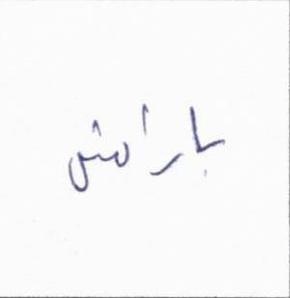 بارامش